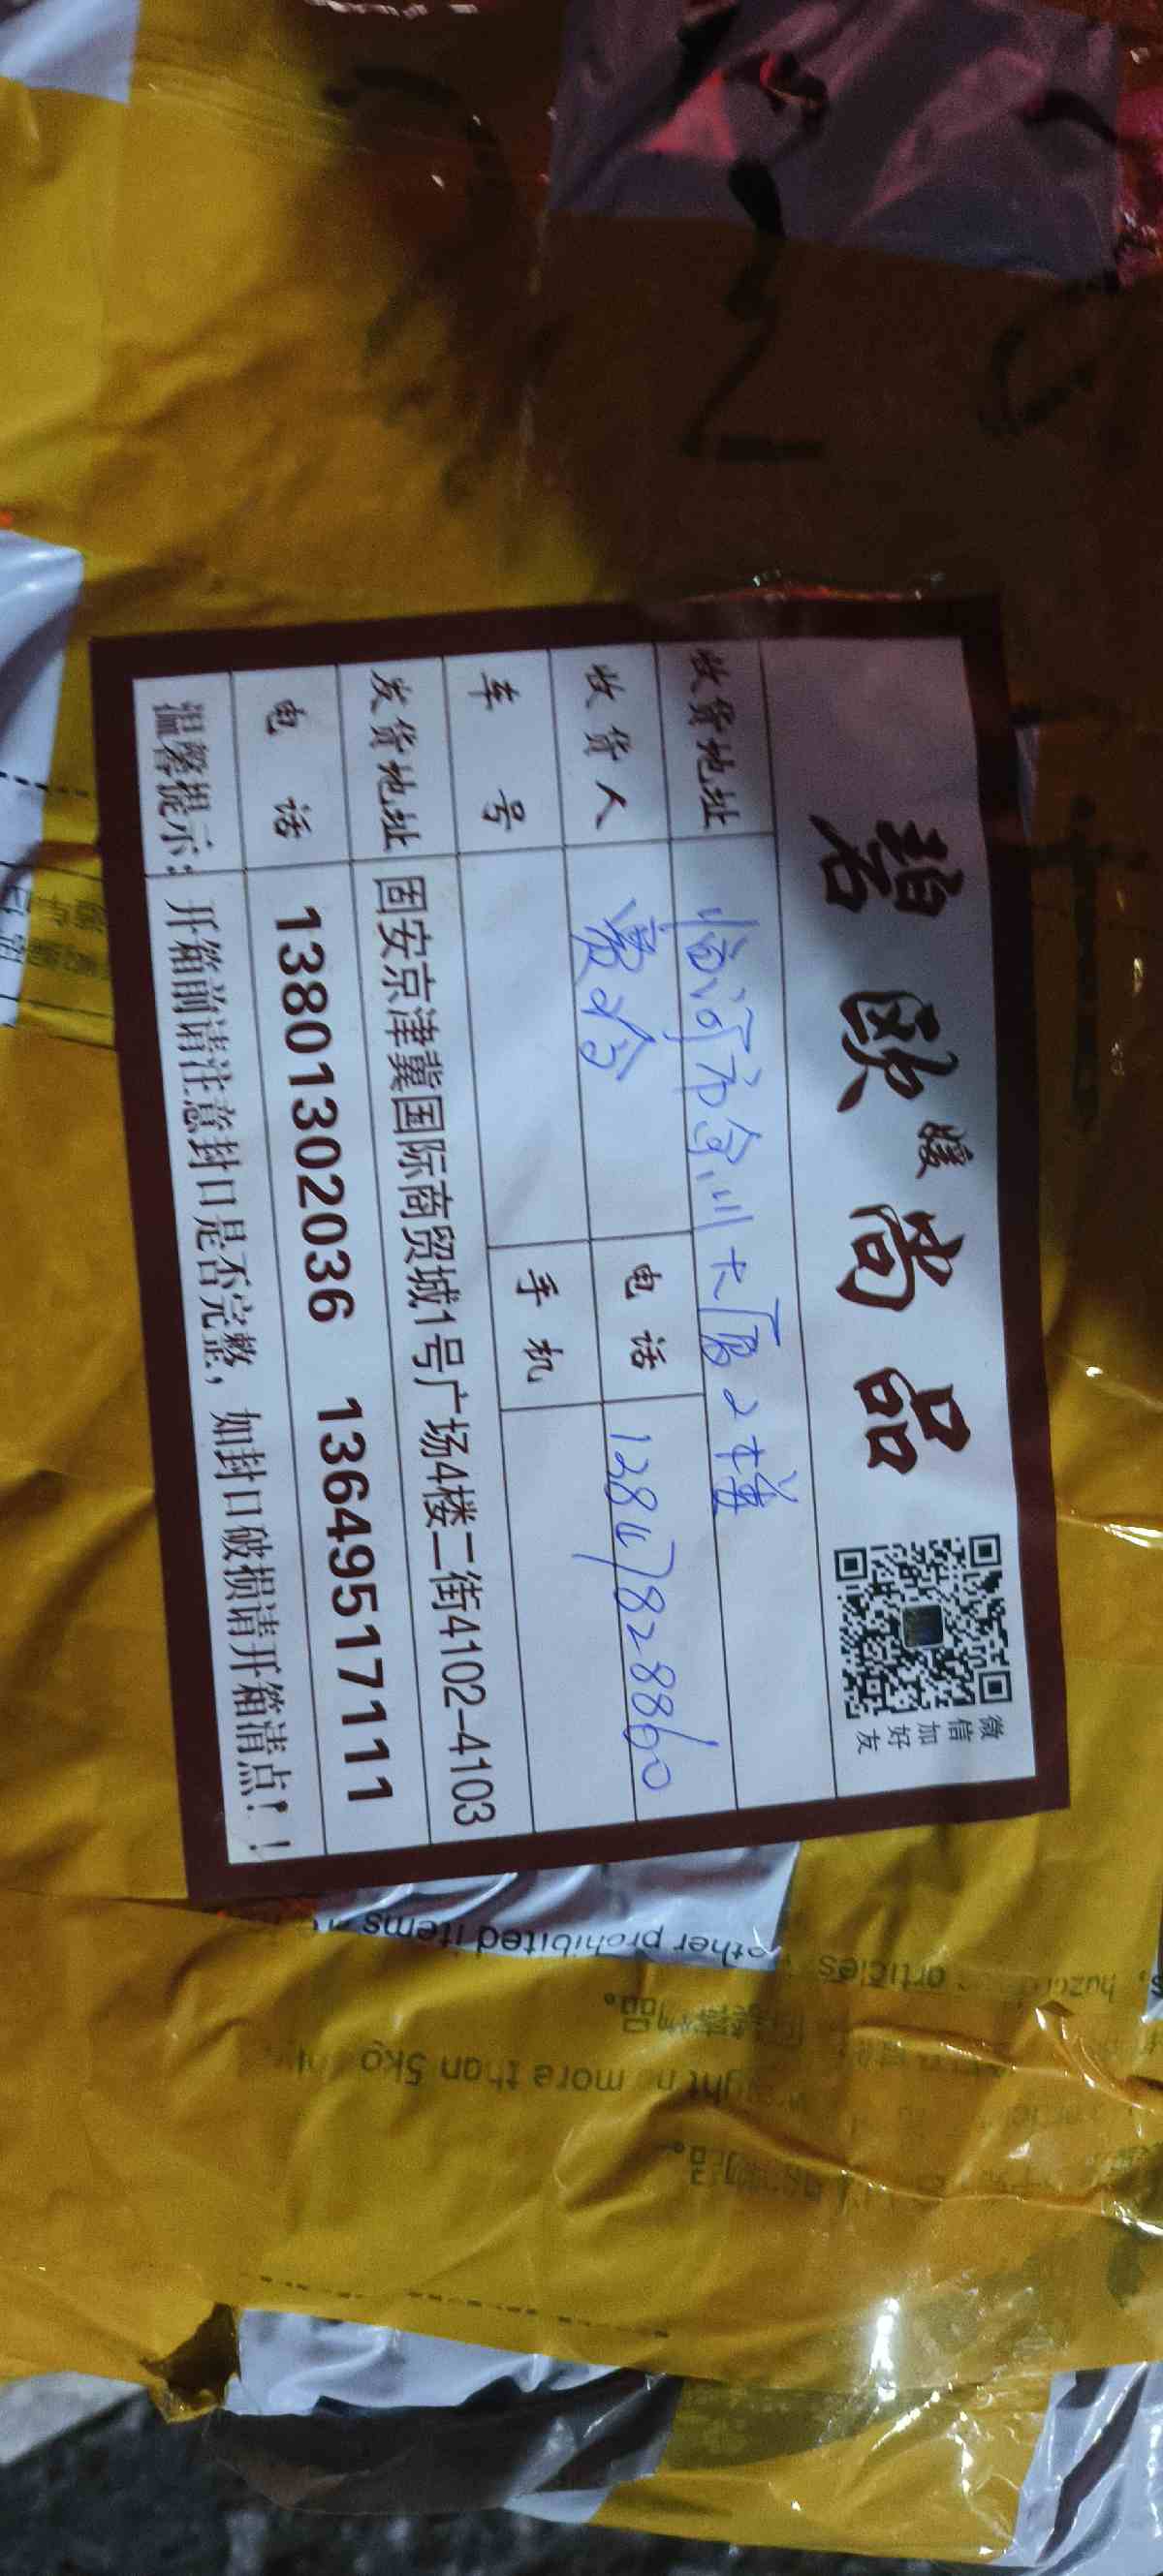 碧欧暖尚品
微信加好友
收货地址 临河市金川大厦2楼
收货人
电话 13847828860
车号
手机
发货地址 固安京津冀国际商贸城1号广场4楼二街4102-4103
电话 13801302036 13649517111
温馨提示：开箱前请注意封口是否完整，如封口破损请开箱清点！！
other prohibited items
articles
more than 5kg